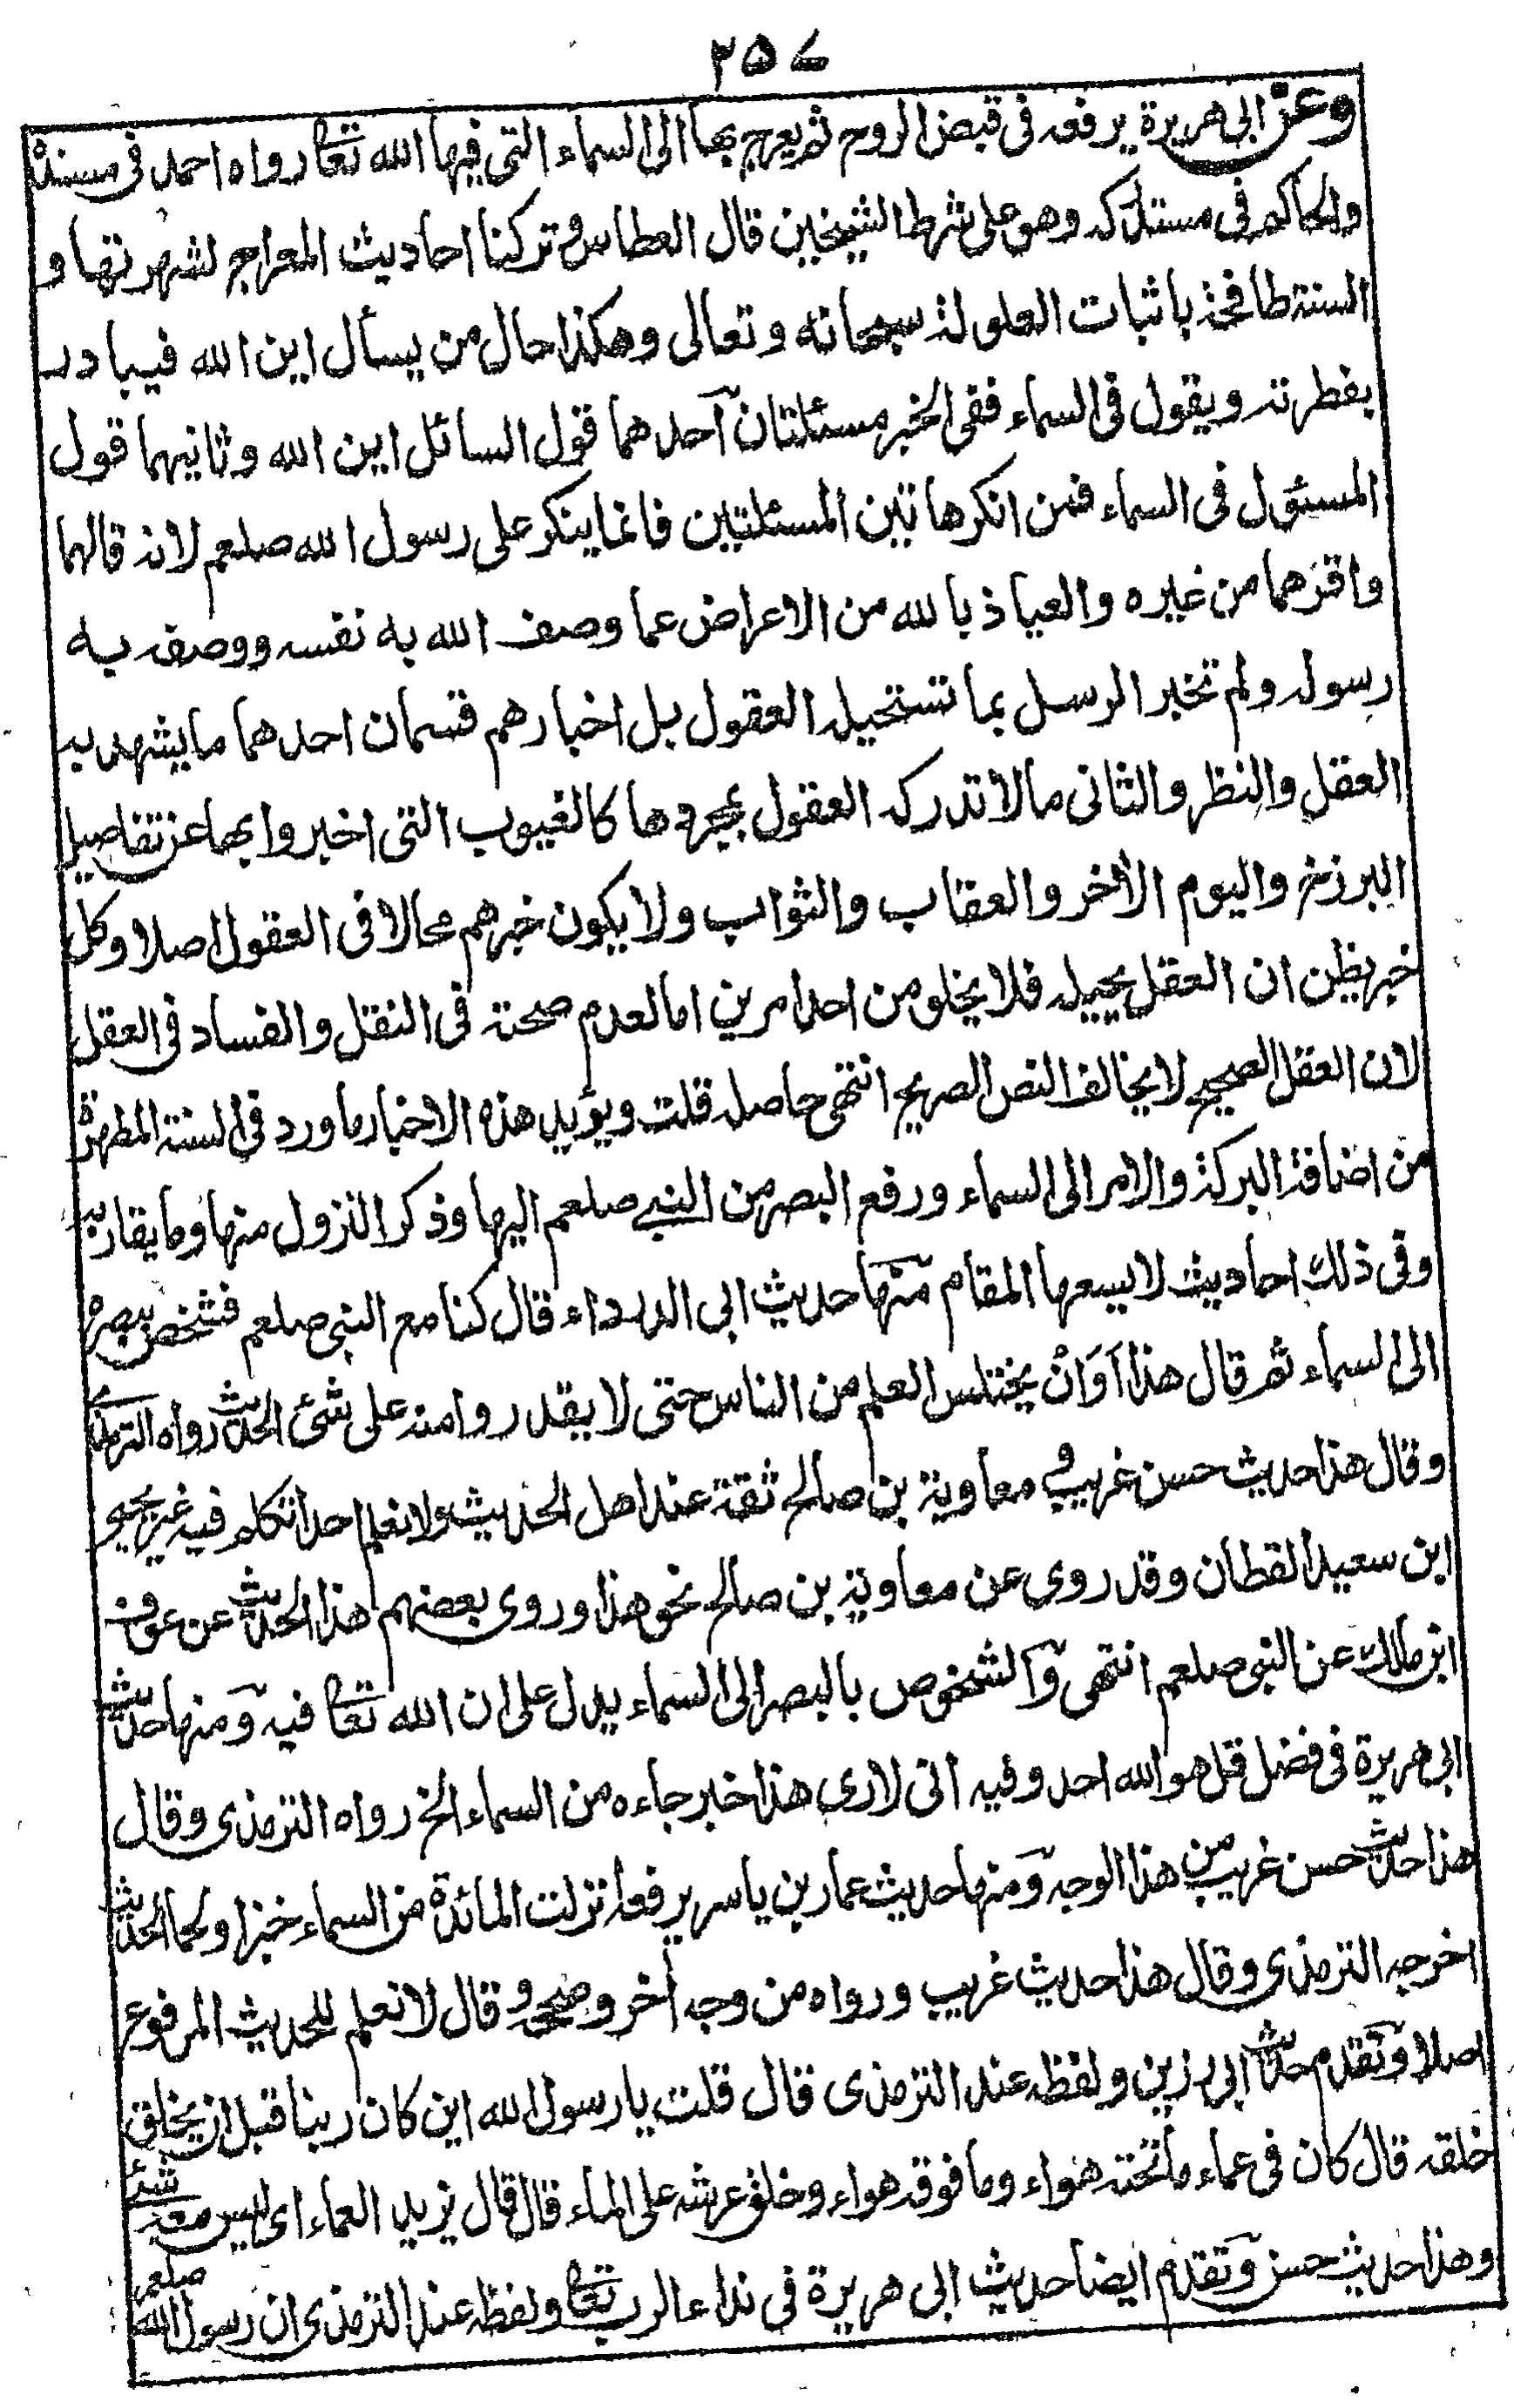 ۲۵۷
وعن ابی هریرة یرفعه فی قبض الروح ثم یعرج بها الی السماء التی فیها الله تعا رواه احمد فی مسنده
والحاکم فی مستدرکه وهو علی شرط الشیخین قال العطاس وترکنا احادیث المعراج لشهرتها و
السنة طافحة باثبات العلو لله سبحانه وتعالی وهکذا حال من یسأل این الله فیبادر
بفطرته ویقول فی السماء ففی الخبر مسئلتان آحدهما قول السائل این الله وثانیهما قول
المسئول فی السماء فمن انکر هاتین المسئلتین فانما ینکر علی رسول الله صلعم لانه قالهما
واقرهما من غیره والعیاذ بالله من الاعراض عما وصف الله به نفسه ووصفه به
رسوله ولم تخبر الرسل بما تستحیله العقول بل اخبارهم قسمان احدهما ما یشهد به
العقل والنظر والثانی ما لا تدرکه العقول بمجردها کالغیوب التی اخبروا بها عن تفاصیل
البرزخ والیوم الأخر والعقاب والثواب ولا یکون خبرهم محالا فی العقول اصلا وکل
خبر یظن ان العقل یحیله فلا یخلو من احد امرین اما لعدم صحته فی النقل والفساد فی العقل
لان العقل الصحیح لا یخالف النص الصریح انتهی حاصله قلت ویؤید هذه الاخبار ما ورد فی السنة المطهرة
من اضافة البرکة والامر الی السماء ورفع البصر من النبی صلعم الیها وذکر النزول منها وما یقاربه
وفی ذلک احادیث لا یسعها المقام منها حدیث ابی الدرداء قال کنا مع النبی صلعم فشخص ببصره
الی السماء ثم قال هذا اَوَانٌ یختلس العلم من الناس حتی لا یقدروا منه علی شئ الحدیث رواه الترمذی
وقال هذا حدیث حسن غریب و معاویة بن صالح ثقة عند اهل الحدیث ولا نعلم احدا تکلم فیه غیر یحیی
ابن سعید القطان وقد روی عن معاویة بن صالح نحو هذا وروی بعضهم هذا الحدیث عن عوف
ابن مالک عن النبی صلعم انتهی والشخوص بالبصر الی السماء یدل علی ان الله تعا فیه ومنها حدیث
ابی هریرة فی فضل قل هو الله احد وفیه انی لاری هذا خبر جاءه من السماء الخ رواه الترمذی وقال
هذا حدیث حسن غریب من هذا الوجه ومنها حدیث عمار بن یاسر یرفعه نزلت المائدة من السماء خبزا ولحما الحدیث
اخرجه الترمذی وقال هذا حدیث غریب ورواه من وجه أخر وصححه وقال لا نعلم للحدیث المرفوع
اصلا وتقدم حدیث ابی رزین ولفظه عند الترمذی قال قلت یا رسول الله این کان ربنا قبل ان یخلق
خلقه قال کان فی عماء ما تحته هواء وما فوقه هواء وخلق عرشه علی الماء قال قال یزید العماء ای لیس معه شئ
وهذا حدیث حسن وتقدم ایضا حدیث ابی هریرة فی نداء الرب تعا ولفظه عند الترمذی ان رسول الله صلعم